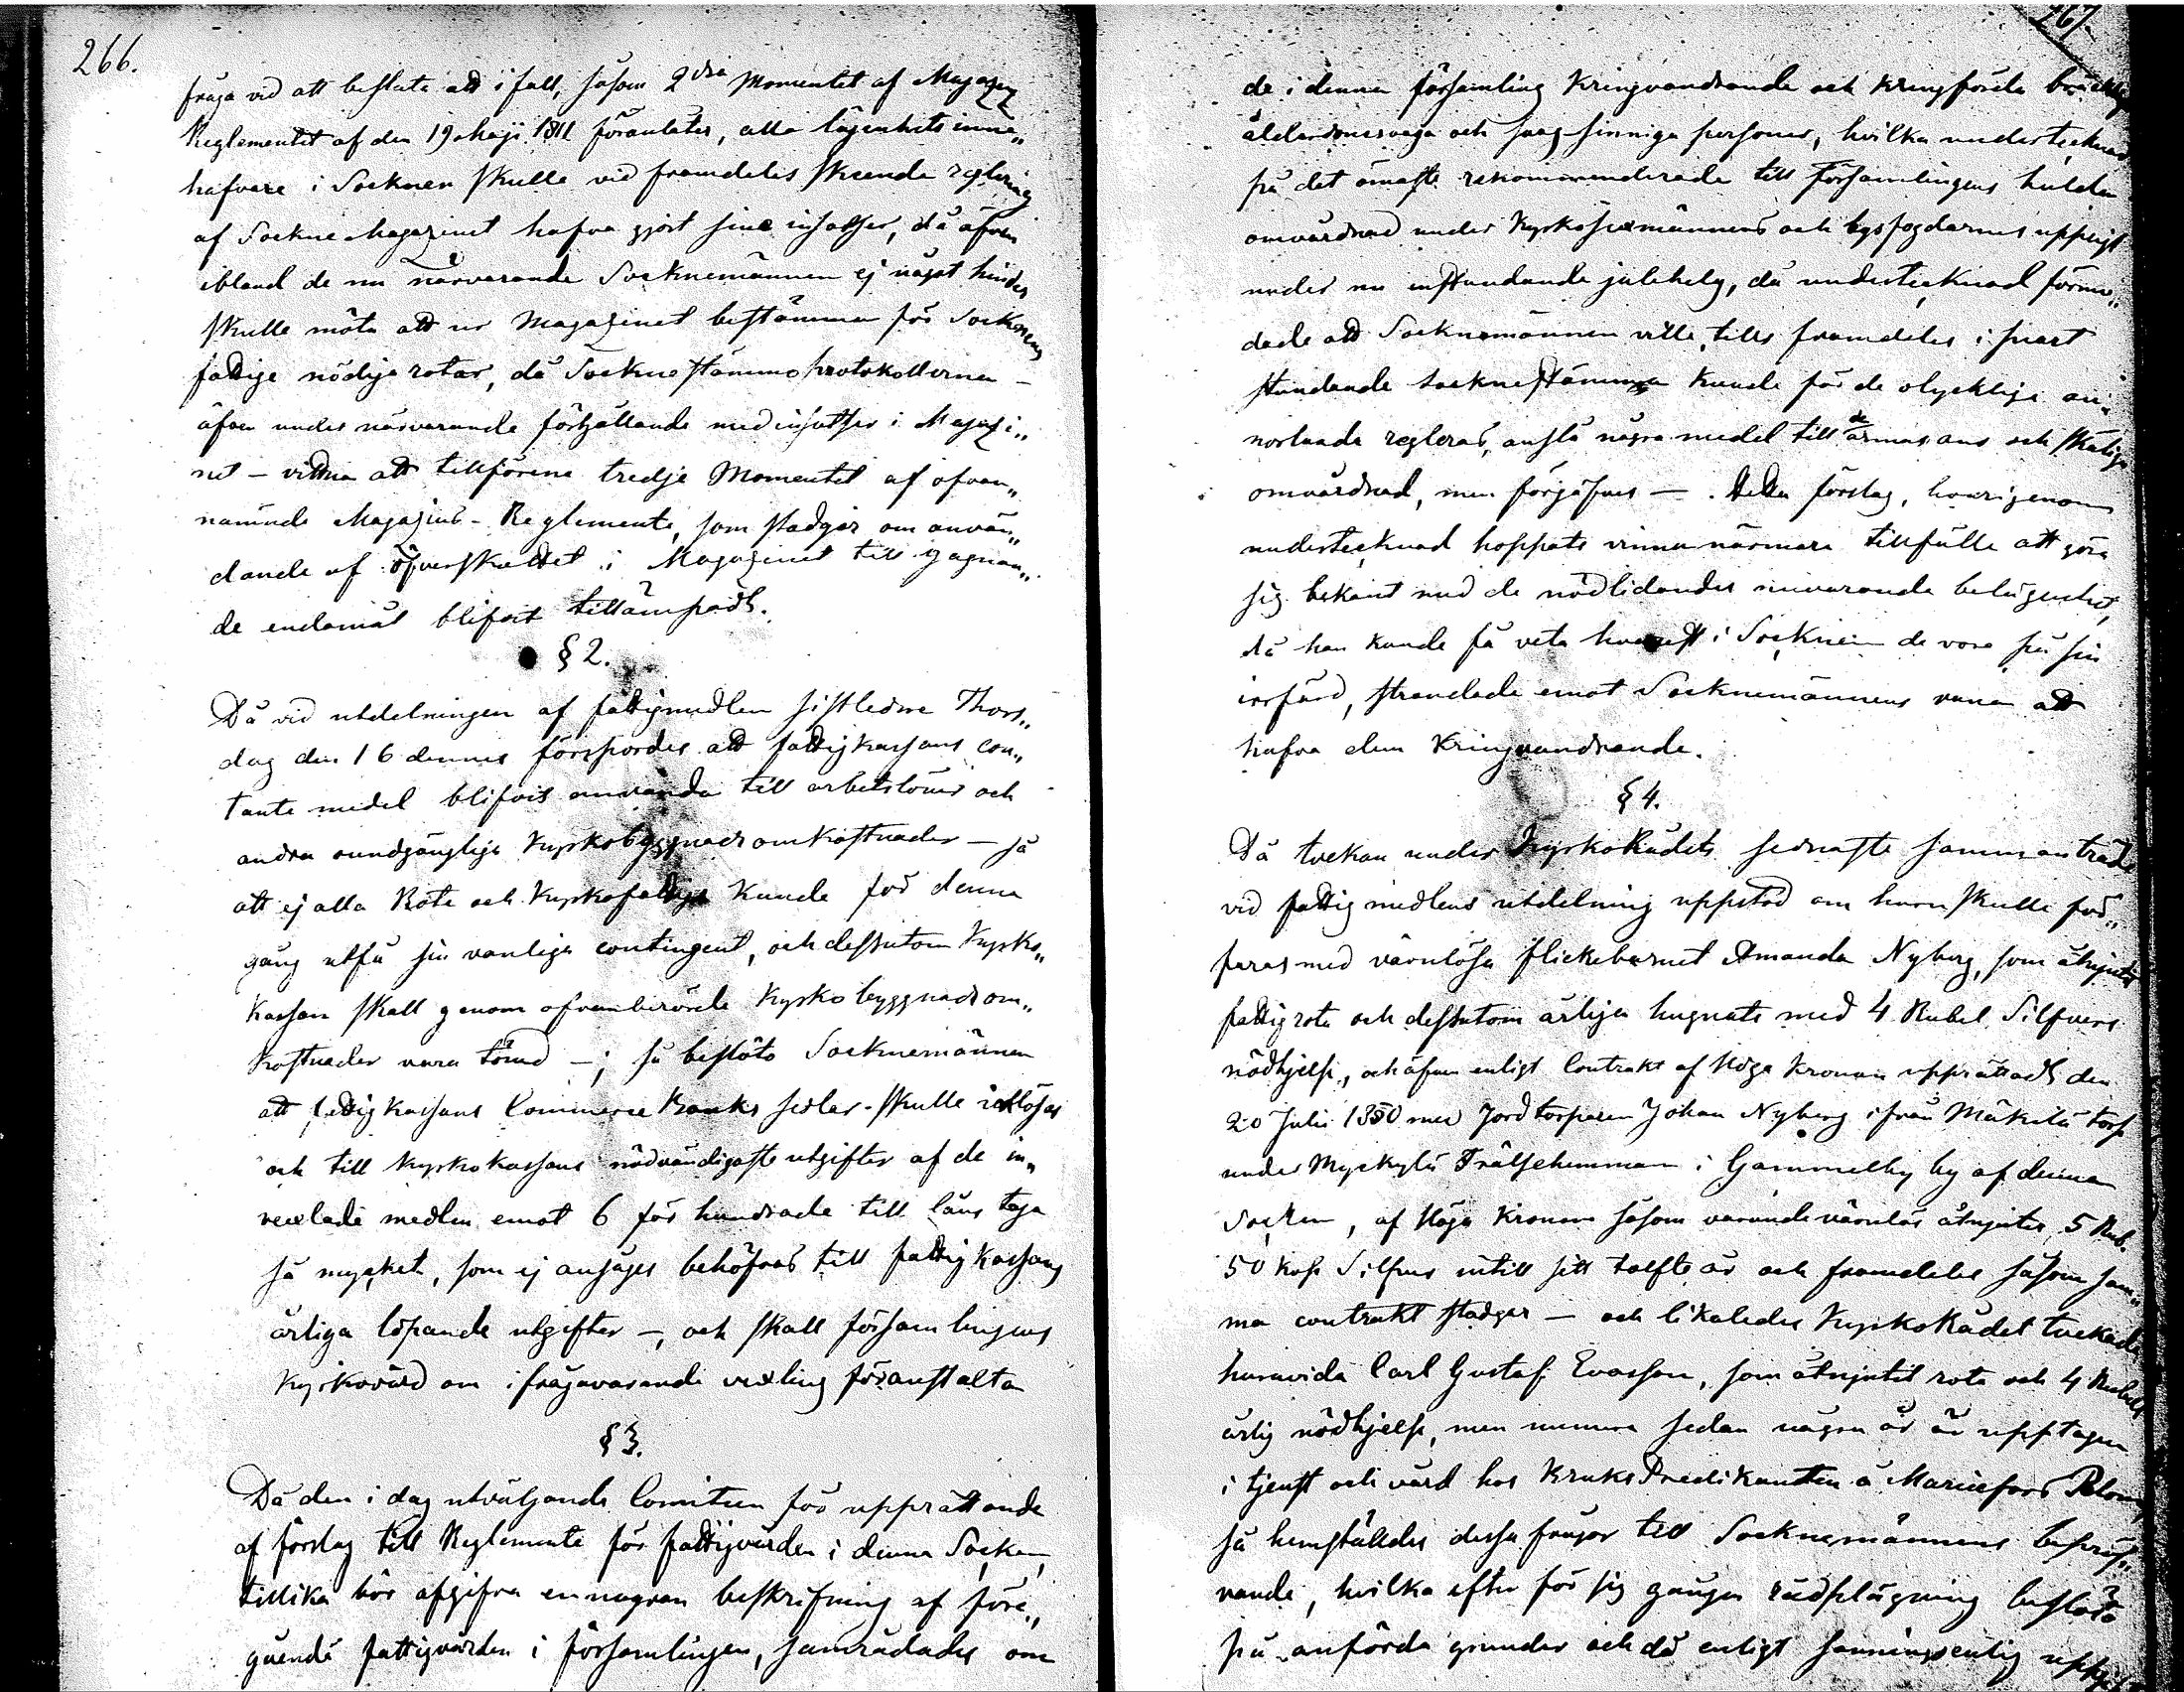 266.
fråga vid att besluta att i fall, såsom 2dra Momentet af Magazin
Reglementet af den 19 Maji 1811 föranleder, alla lägenhets inne„
hafvare i Socknen skulle vid framdeles skeende reglering
af Sockne Magazinet hafva gjort sine insatser, då äfven
ibland de nu närvarande Socknemännen ej något hinder
skulle möta att ur Magazinet bestämma för Socknens
fattige nödige rotar, då Sockne stämmo protokollerne –
äfven under närvarande förhållande med insatser i Magazi„
net – vittna att tillförene tredje Momentet af ofvan„
nämnde Magazins-Reglemente, som stadgar om använ„
dande af öfverskottet i Magazinet till gagnan„
de endamål blifvit tillämpadt.
§ 2.
Då vid utdelningen af fattigmedlen sistledne Thors„
dag den 16 dennes försпordes att fattigkassans con„
tante medel blifvit använda till arbetslöner och
andra oundgänglige Kyrkobyggnads omkostnader – så
att ej alla Rote och Kyrkofattige kunde för denna
gång utfå sin vanliga contingent, och dessutom Kyrko„
kassan skall genom ofvanberörde Kyrkobyggnads om„
kostnader vara tömd –; så beslöto Socknemännen
att fattig Kassans Commerce Banks sedlar skulle inlösas
och till Kyrkokassans nödvändigaste utgifter af de in„
vexlade medlen emot 6 för hundrade till låns taga
så mycket, som ej anses behöfvas till fattig Kassans
årliga löpande utgifter –, och skall församlingens
Kyrkovärd om ifrågavarande vexling föranstalta
§ 3.
Då den i dag utväljande Comiteen för upprättande
af förslag till Reglemente för fattigvården i denna Socken,
tillika bör afgifva en noggran beskrifning af före„
gående fattigvården i församlingen, samrådades om
267.
de i denna församling Kringvandrande och Kringförda bräcklige
ålderdomssvaga och svagsinniga personer, hvilka undertecknad
på det ömaste rekommenderade till församlingens hulda
omvårdnad under Kyrkosexmännens och byfogdarnes uppsigt
under nu instundande julehelg, då undertecknad förmo„
dade att Socknemännen ville, tills framdeles i snart
stundande Socknestämma kunde för de olycklige an„
norlunda regleras, anslå några medel till de armas ans och skäliga
omvårdnad, men förgäfves –. Detta förslag, hvarigenom
undertecknad hoppats vinna närmare tillfälle att göra
sig bekant med de nödlidandes nuvarande belägenhet,
då han kunde få veta hvarest i Socknen de voro på sin
irrfärd, strandade emot Socknemännens vana att
hafva dem Kringvandrande.
§ 4.
Då tvekan under KyrkoRådets sednaste sammanträde
vid fattig medlens utdelning uppstod om huru skulle för„
faras med värnlösa flickebarnet Amanda Nyberg, som åtnjutit
fattigrote och dessutom årligen hugnats med 4 Rubel Silfvers
nödhjelp, och äfven enligt Contrakt af Höga Kronan upprättadt den
20 Julii 1850 med Jordtorparen Johan Nyberg ifrån Mäkelä torp
under Myrkylä Frälsehemman i Gammelby by af denna
Socken, af Höga Kronan såsom varande värnlös åtnjuter 5 Rub.
50 kop Silfver intill sitt tolfte år och framdeles såsom sam„
ma contrakt stadgar – och likaledes KyrkoRådet tvekade
huruvida Carl Gustaf Evasson, som åtnjutit rote och 4 Rubels
årlig nödhjelp, men numera sedan några år är upptagen
i tjenst och vård hos Bruks Predikanten å Mariefors
så hemställdes dessa frågor till Socknemännens bepröf„
vande, hvilka efter för sig gången rådplägning beslöto
på anförda grunder och då enligt sanningsenlig uppgift